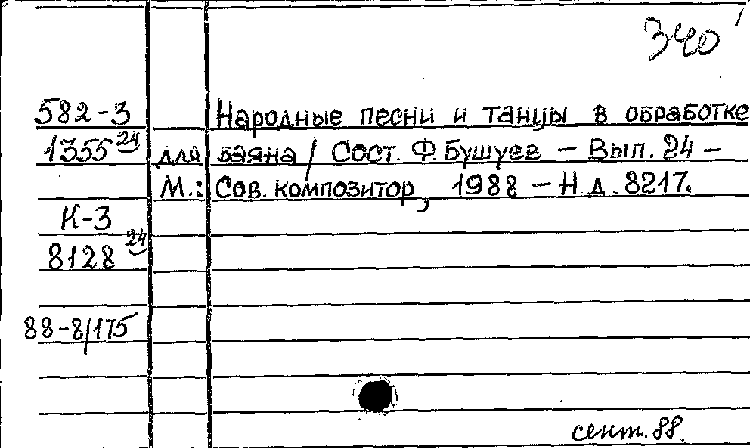 340
582-3 Народные песни и танцы в обработке
1355 24 для баяна / Сост. Ф. Бушуев – Вып. 24 –
М.: Сов. композитор, 1988 – Н.д. 8217.
К-3
8128 24
88-8/175
сент. 88